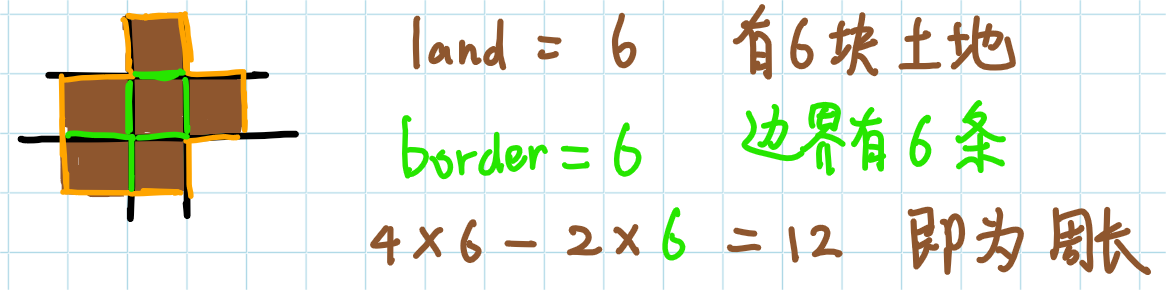 land = 6 有6块土地
border = 6 边界有6条
4×6-2×6=12 即为周长